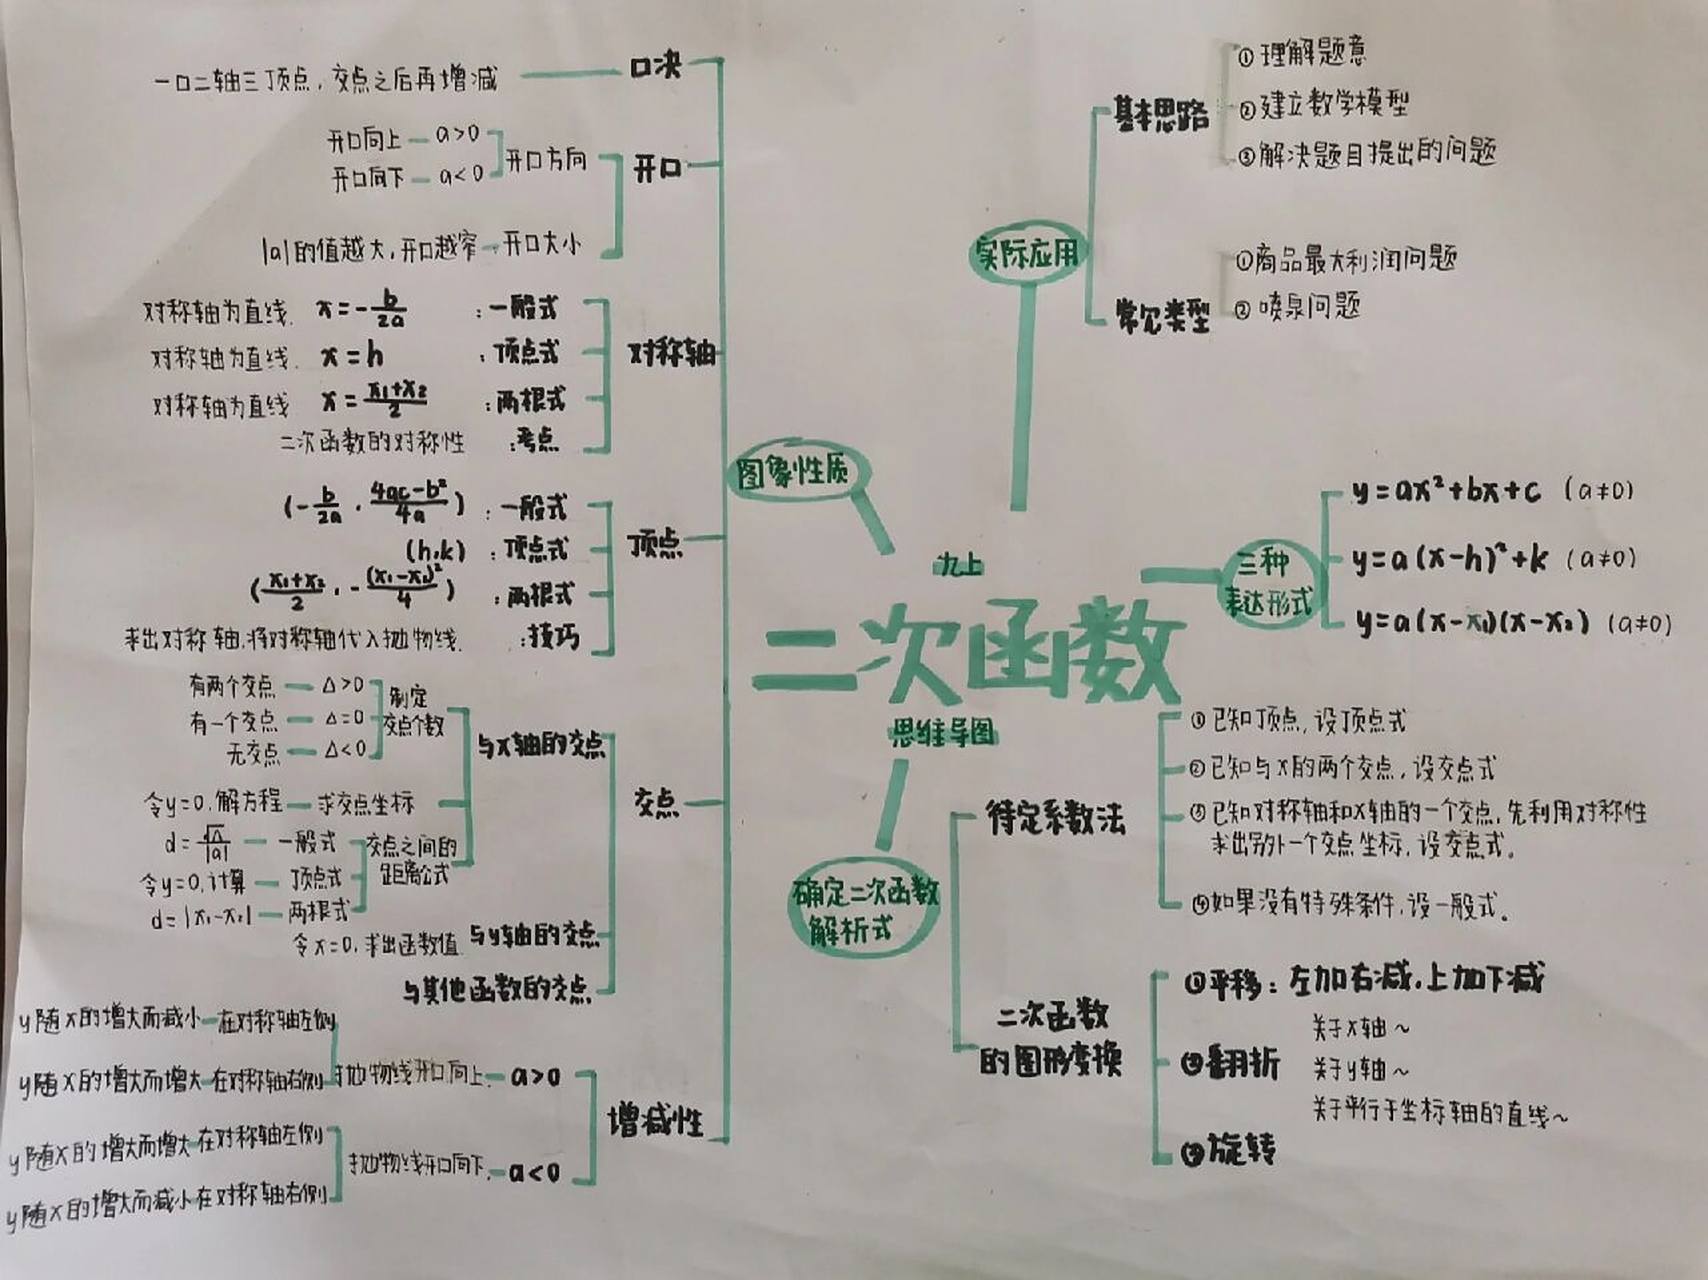 九上
二次函数
思维导图
图象性质
口决
一口二轴三顶点，交点之后再增减
开口
开口方向
开口向上 — a>0
开口向下 — a<0
|a|的值越大，开口越窄 — 开口大小
对称轴
对称轴为直线 x=-b/2a ：一般式
对称轴为直线 x=h ：顶点式
对称轴为直线 x=(x₁+x₂)/2 ：两根式
二次函数的对称性 ：考点
顶点
(-b/2a , (4ac-b²)/4a) ：一般式
(h,k) ：顶点式
((x₁+x₂)/2 , -(x₁-x₂)²/4) ：两根式
求出对称轴，将对称轴代入抛物线 ：技巧
交点
与x轴的交点
制定
交点个数
有两个交点 — Δ>0
有一个交点 — Δ=0
无交点 — Δ<0
令y=0，解方程 — 求交点坐标
交点之间的
距离公式
d=√Δ/|a| — 一般式
令y=0，计算 — 顶点式
d=|x₁-x₂| — 两根式
令x=0，求出函数值 与y轴的交点
与其他函数的交点
增减性
抛物线开口向上 — a>0
y随x的增大而减小 — 在对称轴左侧
y随x的增大而增大 — 在对称轴右侧
抛物线开口向下 — a<0
y随x的增大而增大 — 在对称轴左侧
y随x的增大而减小 在对称轴右侧
实际应用
基本思路
①理解题意
②建立数学模型
③解决题目提出的问题
常见类型
①商品最大利润问题
②喷泉问题
三种
表达形式
y=ax²+bx+c (a≠0)
y=a(x-h)²+k (a≠0)
y=a(x-x₁)(x-x₂) (a≠0)
确定二次函数
解析式
待定系数法
①已知顶点，设顶点式
②已知与x的两个交点，设交点式
③已知对称轴和x轴的一个交点，先利用对称性
求出另外一个交点坐标，设交点式。
④如果没有特殊条件，设一般式。
二次函数
的图形变换
①平移：左加右减，上加下减
②翻折
关于x轴~
关于y轴~
关于平行于坐标轴的直线~
③旋转